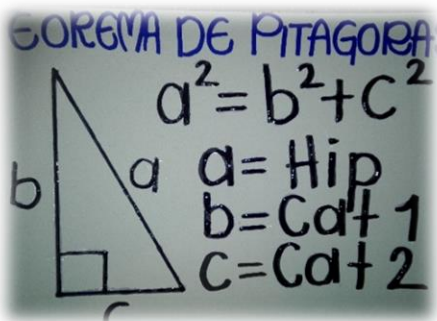 EOREMA DE PITAGORA
a² = b² + c²
b
a
a = Hip
b = Cat 1
c = Cat 2
c